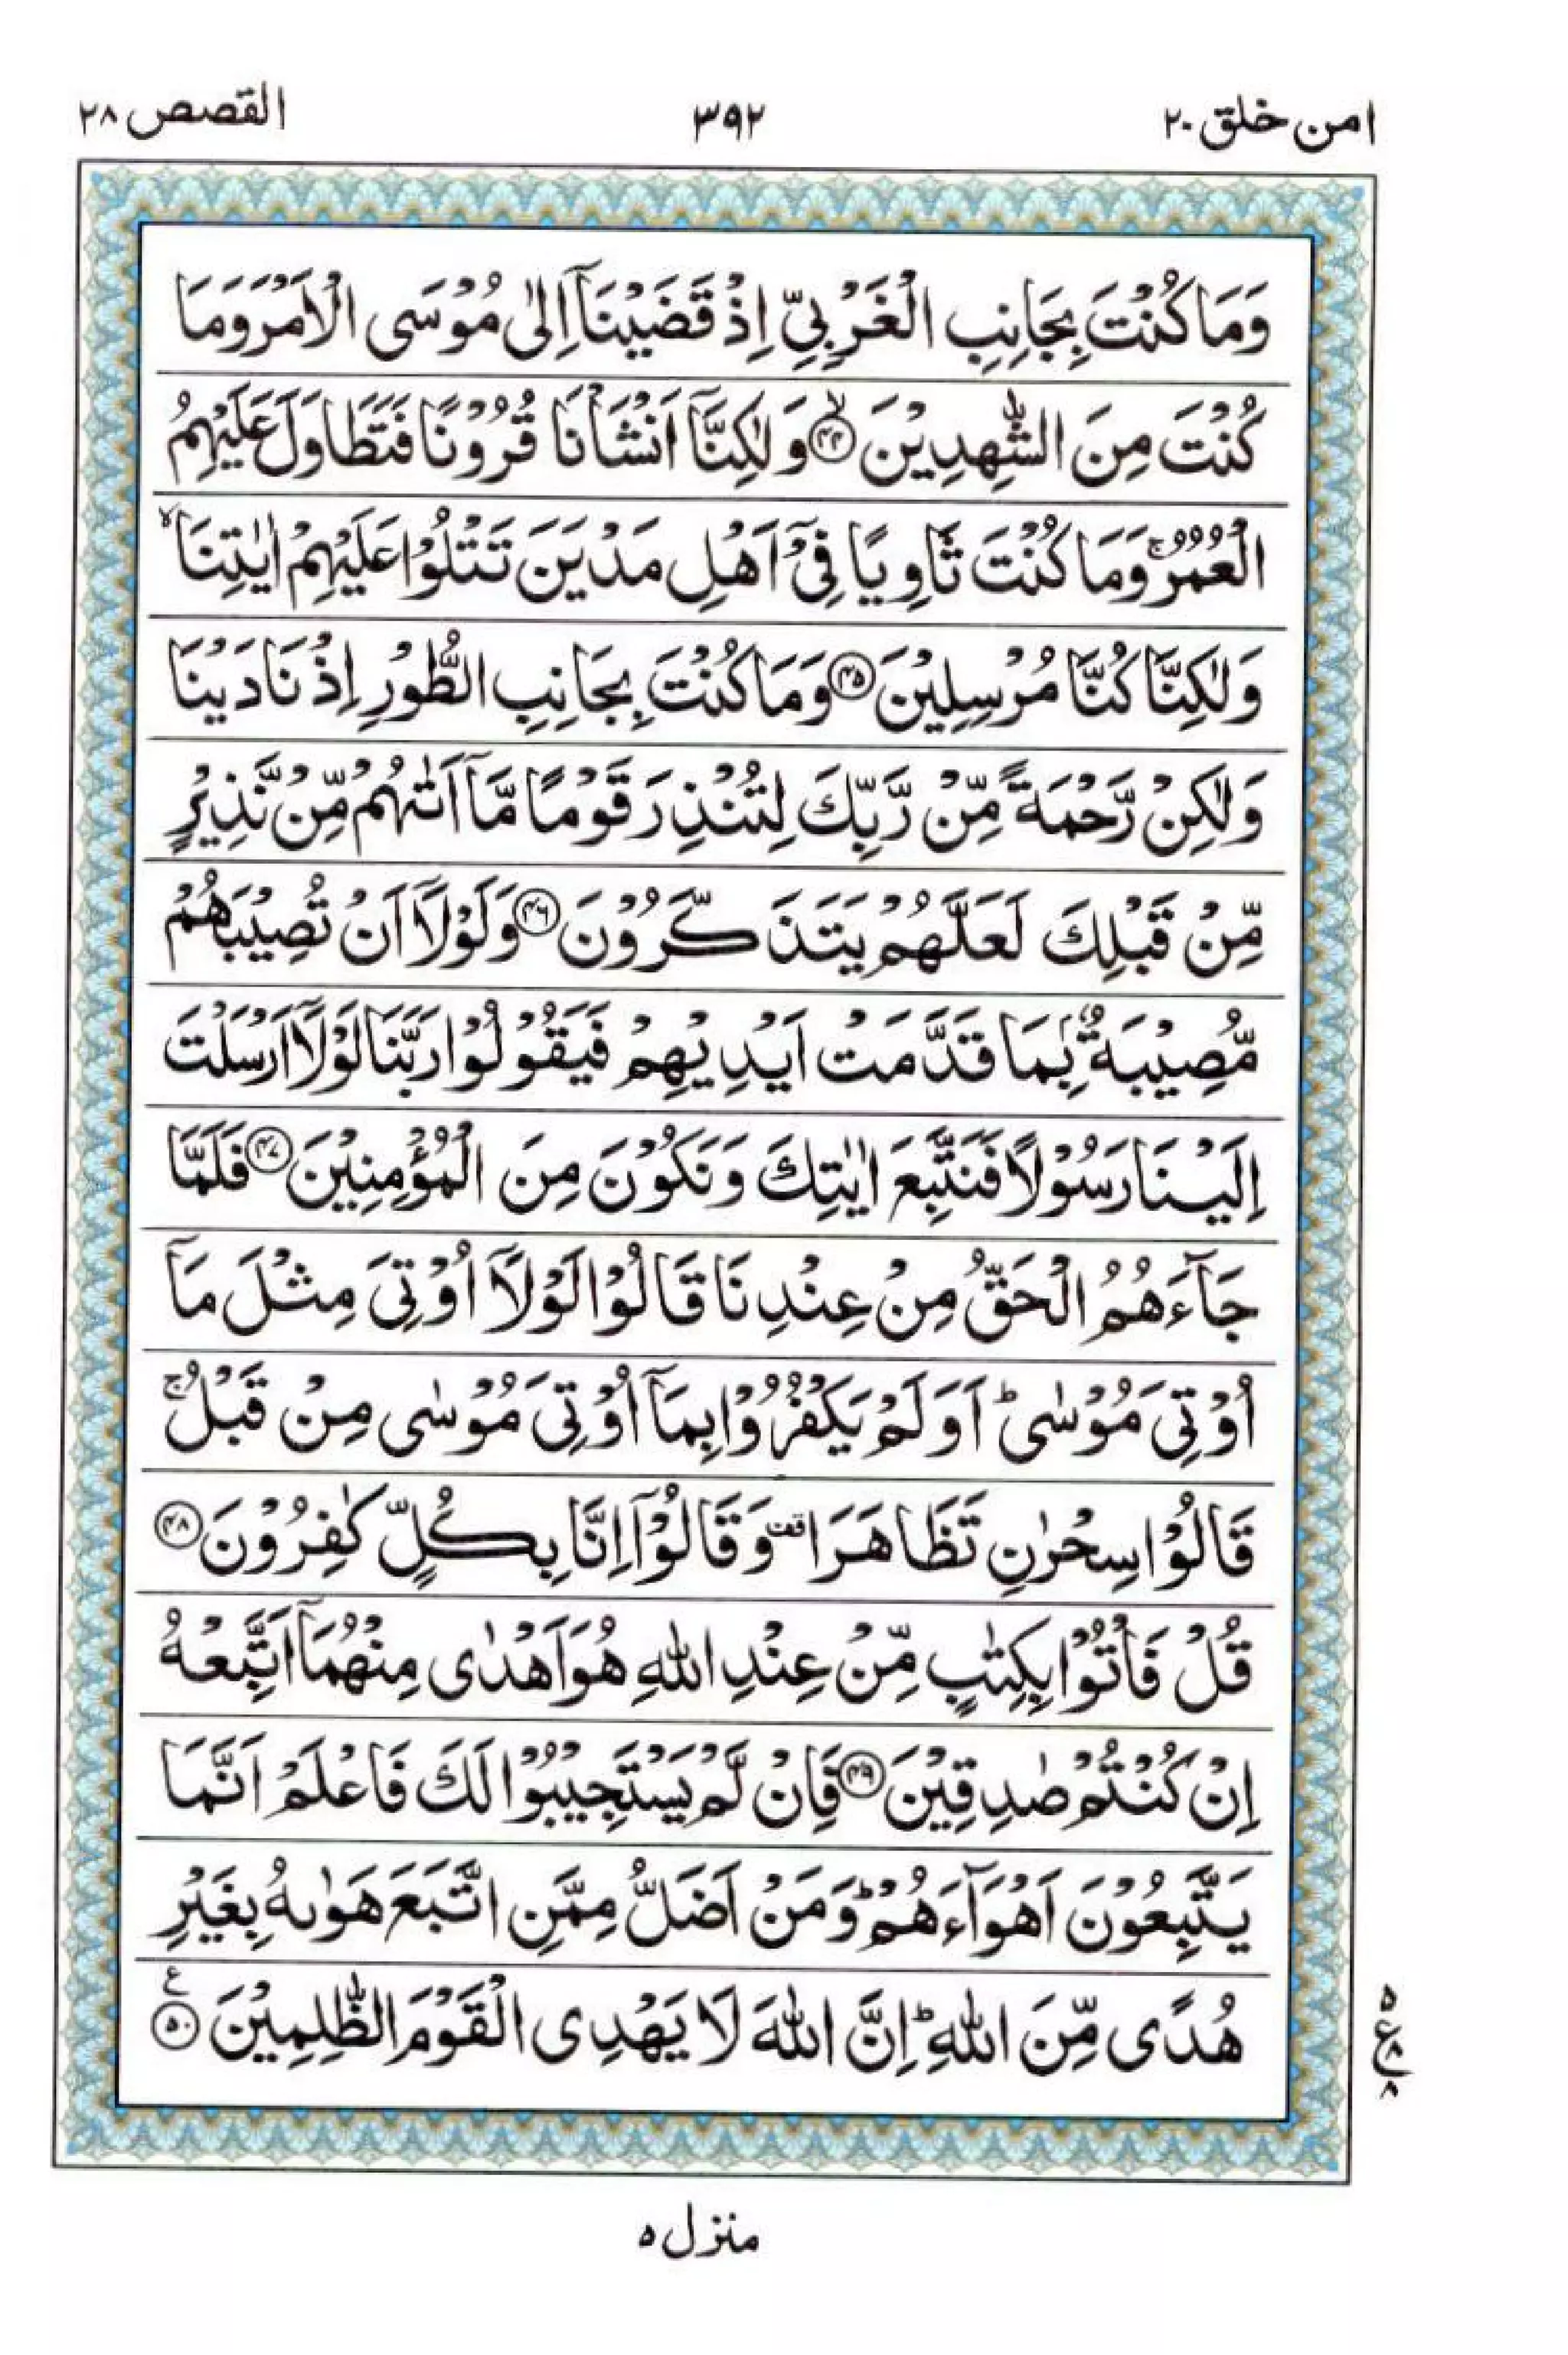 امن خلق ٢٠
٣٩٢
القصص ٢٨
وَمَا كُنْتَ بِجَانِبِ الْغَرْبِيِّ اِذْ قَضَيْنَاۤ اِلٰى مُوْسَى الْاَمْرَ وَمَا
كُنْتَ مِنَ الشّٰهِدِيْنَ ۙ﴿۴۴﴾ وَلٰكِنَّاۤ اَنْشَاْنَا قُرُوْنًا فَتَطَاوَلَ عَلَيْهِمُ
الْعُمُرُ ۚ وَمَا كُنْتَ ثَاوِيًا فِيْۤ اَهْلِ مَدْيَنَ تَتْلُوْا عَلَيْهِمْ اٰيٰتِنَا ۙ
وَلٰكِنَّا كُنَّا مُرْسِلِيْنَ ﴿۴۵﴾ وَمَا كُنْتَ بِجَانِبِ الطُّوْرِ اِذْ نَادَيْنَا
وَلٰكِنْ رَّحْمَةً مِّنْ رَّبِّكَ لِتُنْذِرَ قَوْمًا مَّاۤ اَتٰىهُمْ مِّنْ نَّذِيْرٍ
مِّنْ قَبْلِكَ لَعَلَّهُمْ يَتَذَكَّرُوْنَ ﴿۴۶﴾ وَلَوْلَاۤ اَنْ تُصِيْبَهُمْ
مُّصِيْبَةٌۢ بِمَا قَدَّمَتْ اَيْدِيْهِمْ فَيَقُوْلُوْا رَبَّنَا لَوْلَاۤ اَرْسَلْتَ
اِلَيْنَا رَسُوْلًا فَنَتَّبِعَ اٰيٰتِكَ وَنَكُوْنَ مِنَ الْمُؤْمِنِيْنَ ﴿۴۷﴾ فَلَمَّا
جَآءَهُمُ الْحَقُّ مِنْ عِنْدِنَا قَالُوْا لَوْلَاۤ اُوْتِيَ مِثْلَ مَاۤ
اُوْتِيَ مُوْسٰى ؕ اَوَلَمْ يَكْفُرُوْا بِمَاۤ اُوْتِيَ مُوْسٰى مِنْ قَبْلُ ۚ
قَالُوْا سِحْرٰنِ تَظَاهَرَا قف وَقَالُوْۤا اِنَّا بِكُلٍّ كٰفِرُوْنَ ﴿۴۸﴾
قُلْ فَاْتُوْا بِكِتٰبٍ مِّنْ عِنْدِ اللّٰهِ هُوَ اَهْدٰى مِنْهُمَاۤ اَتَّبِعْهُ
اِنْ كُنْتُمْ صٰدِقِيْنَ ﴿۴۹﴾ فَاِنْ لَّمْ يَسْتَجِيْبُوْا لَكَ فَاعْلَمْ اَنَّمَا
يَتَّبِعُوْنَ اَهْوَآءَهُمْ ؕ وَمَنْ اَضَلُّ مِمَّنِ اتَّبَعَ هَوٰىهُ بِغَيْرِ
هُدًى مِّنَ اللّٰهِ ؕ اِنَّ اللّٰهَ لَا يَهْدِى الْقَوْمَ الظّٰلِمِيْنَ ﴿۵۰﴾ ع
۵
ع ۸
۸
منزل ۵